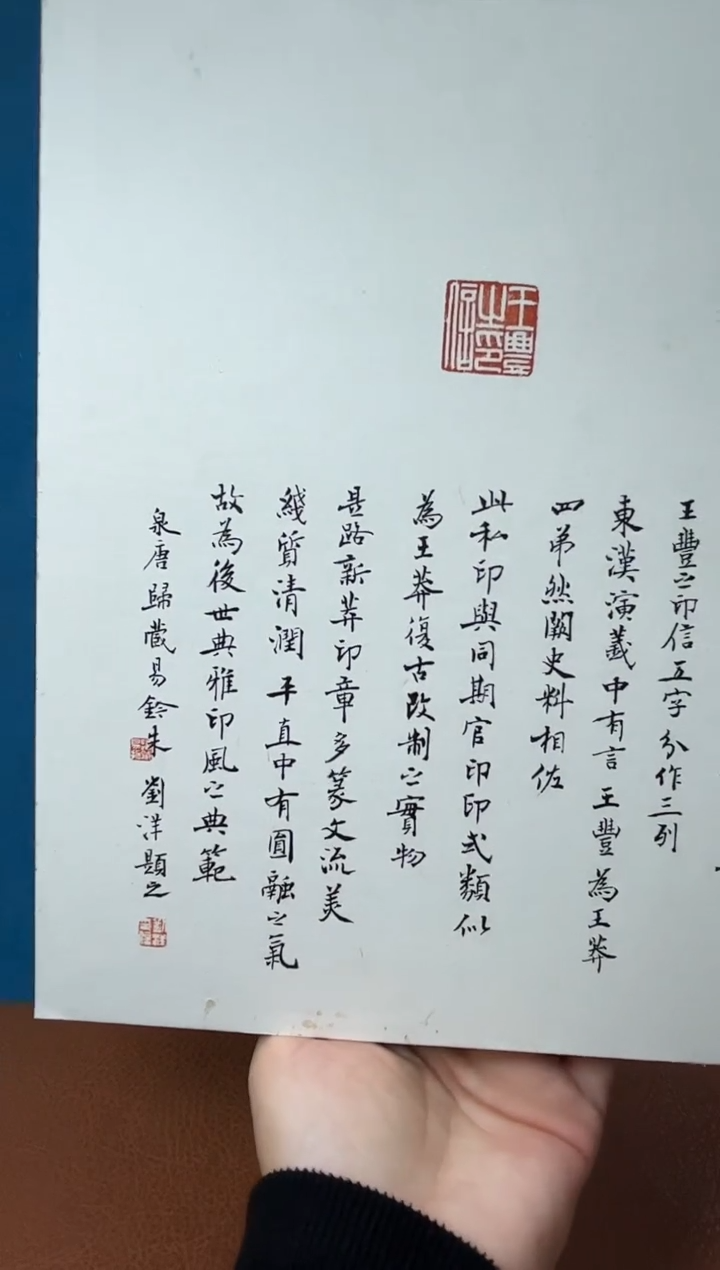 王豐之印信
王豐之印信五字分作三列
東漢演義中有言王豐為王莽
四弟然闕史料相佐
此私印與同期官印印式類似
為王莽復古改制之實物
是路新莽印章多篆文流美
綫質清潤平直中有圓融之氣
故為後世典雅印風之典範
泉唐歸藏易鈐朱
劉洋題之